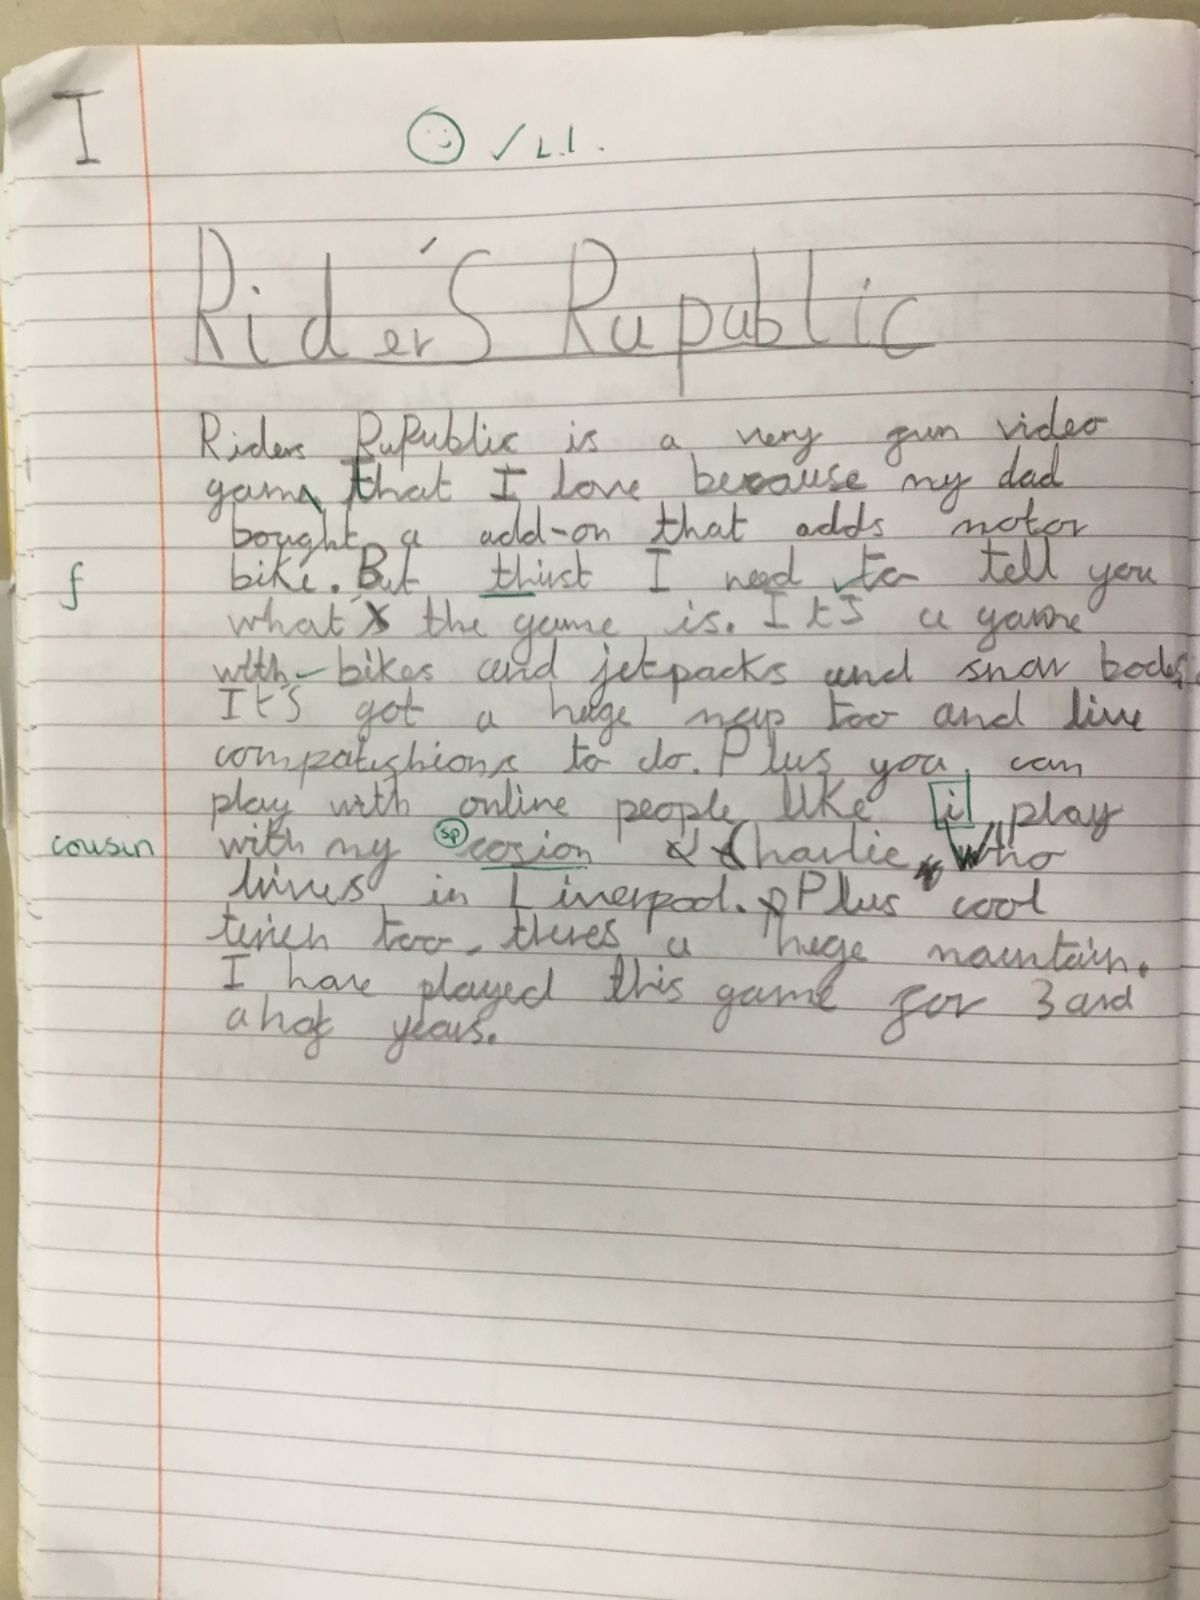 I
✓ L.I.
Rider's Rupublic
Riders RuPublic is a very gun video
game that I love because my dad
bought a add-on that adds motor
bike. But thirst I need to tell you
f
what's the game is. It's a game
with bikes and jetpacks and snow
It's got a huge map too and live
compatishions to do. Plus you can
play with online people like i play
with my cosion Charlie Who
sp
cousin
lives in Liverpool. Plus cool
too. theres a huge mountain.
I have played this game for 3 and
a half years.